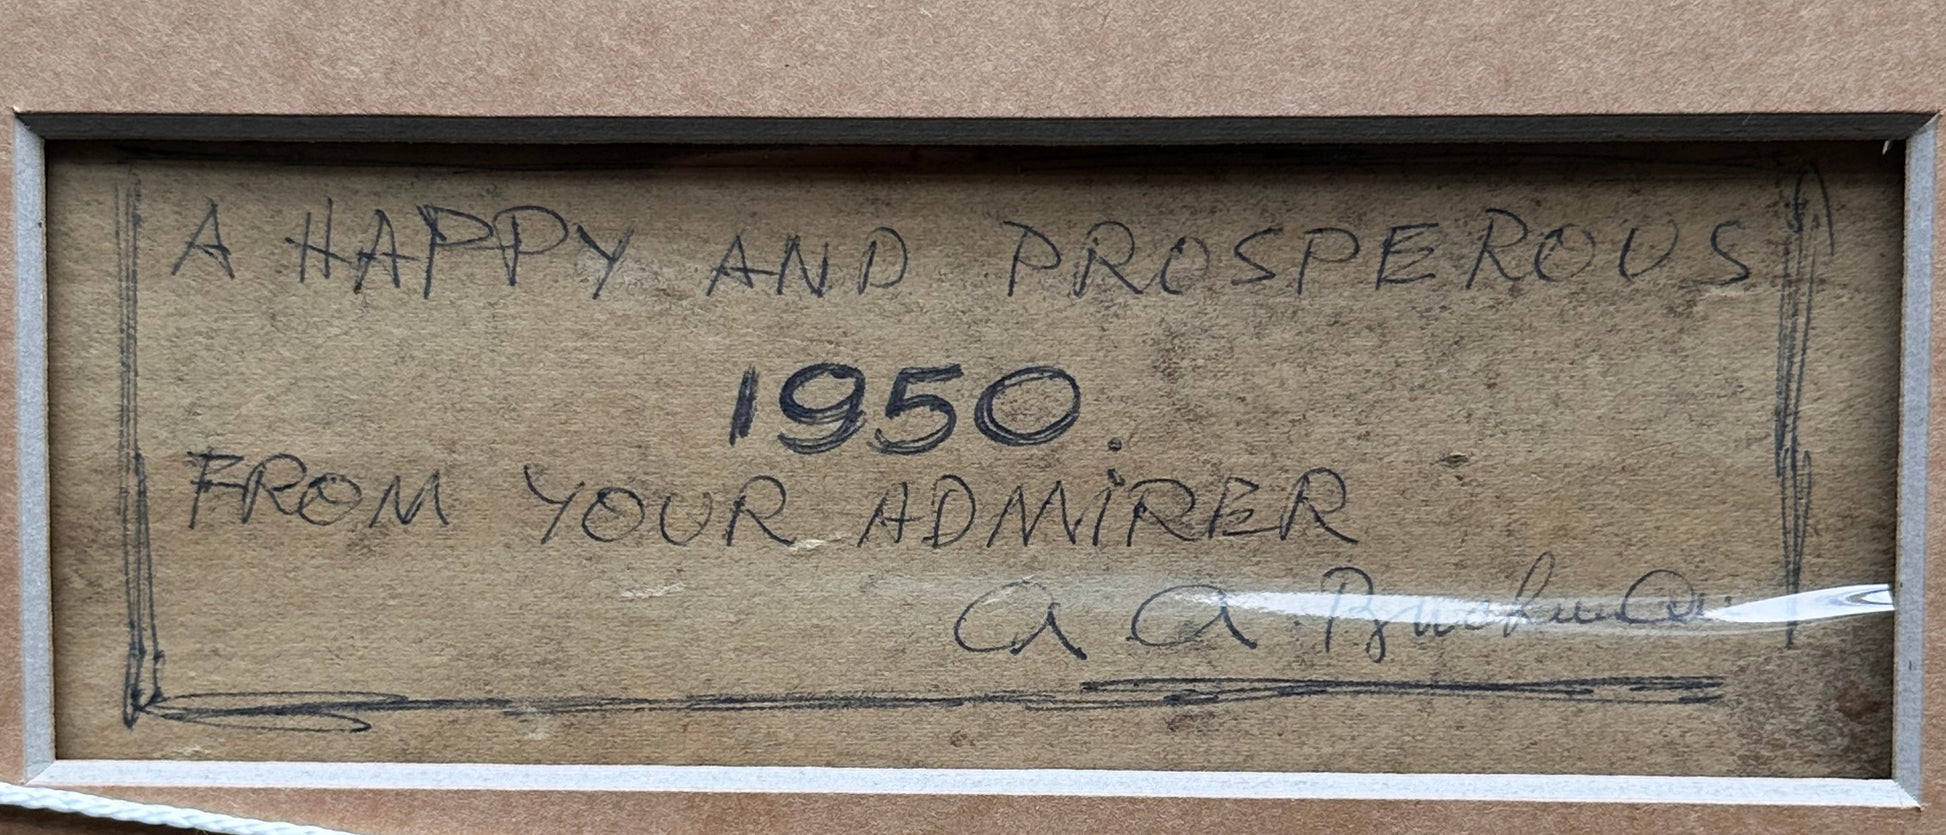 A HAPPY AND PROSPEROUS
1950.
FROM YOUR ADMIRER
a a